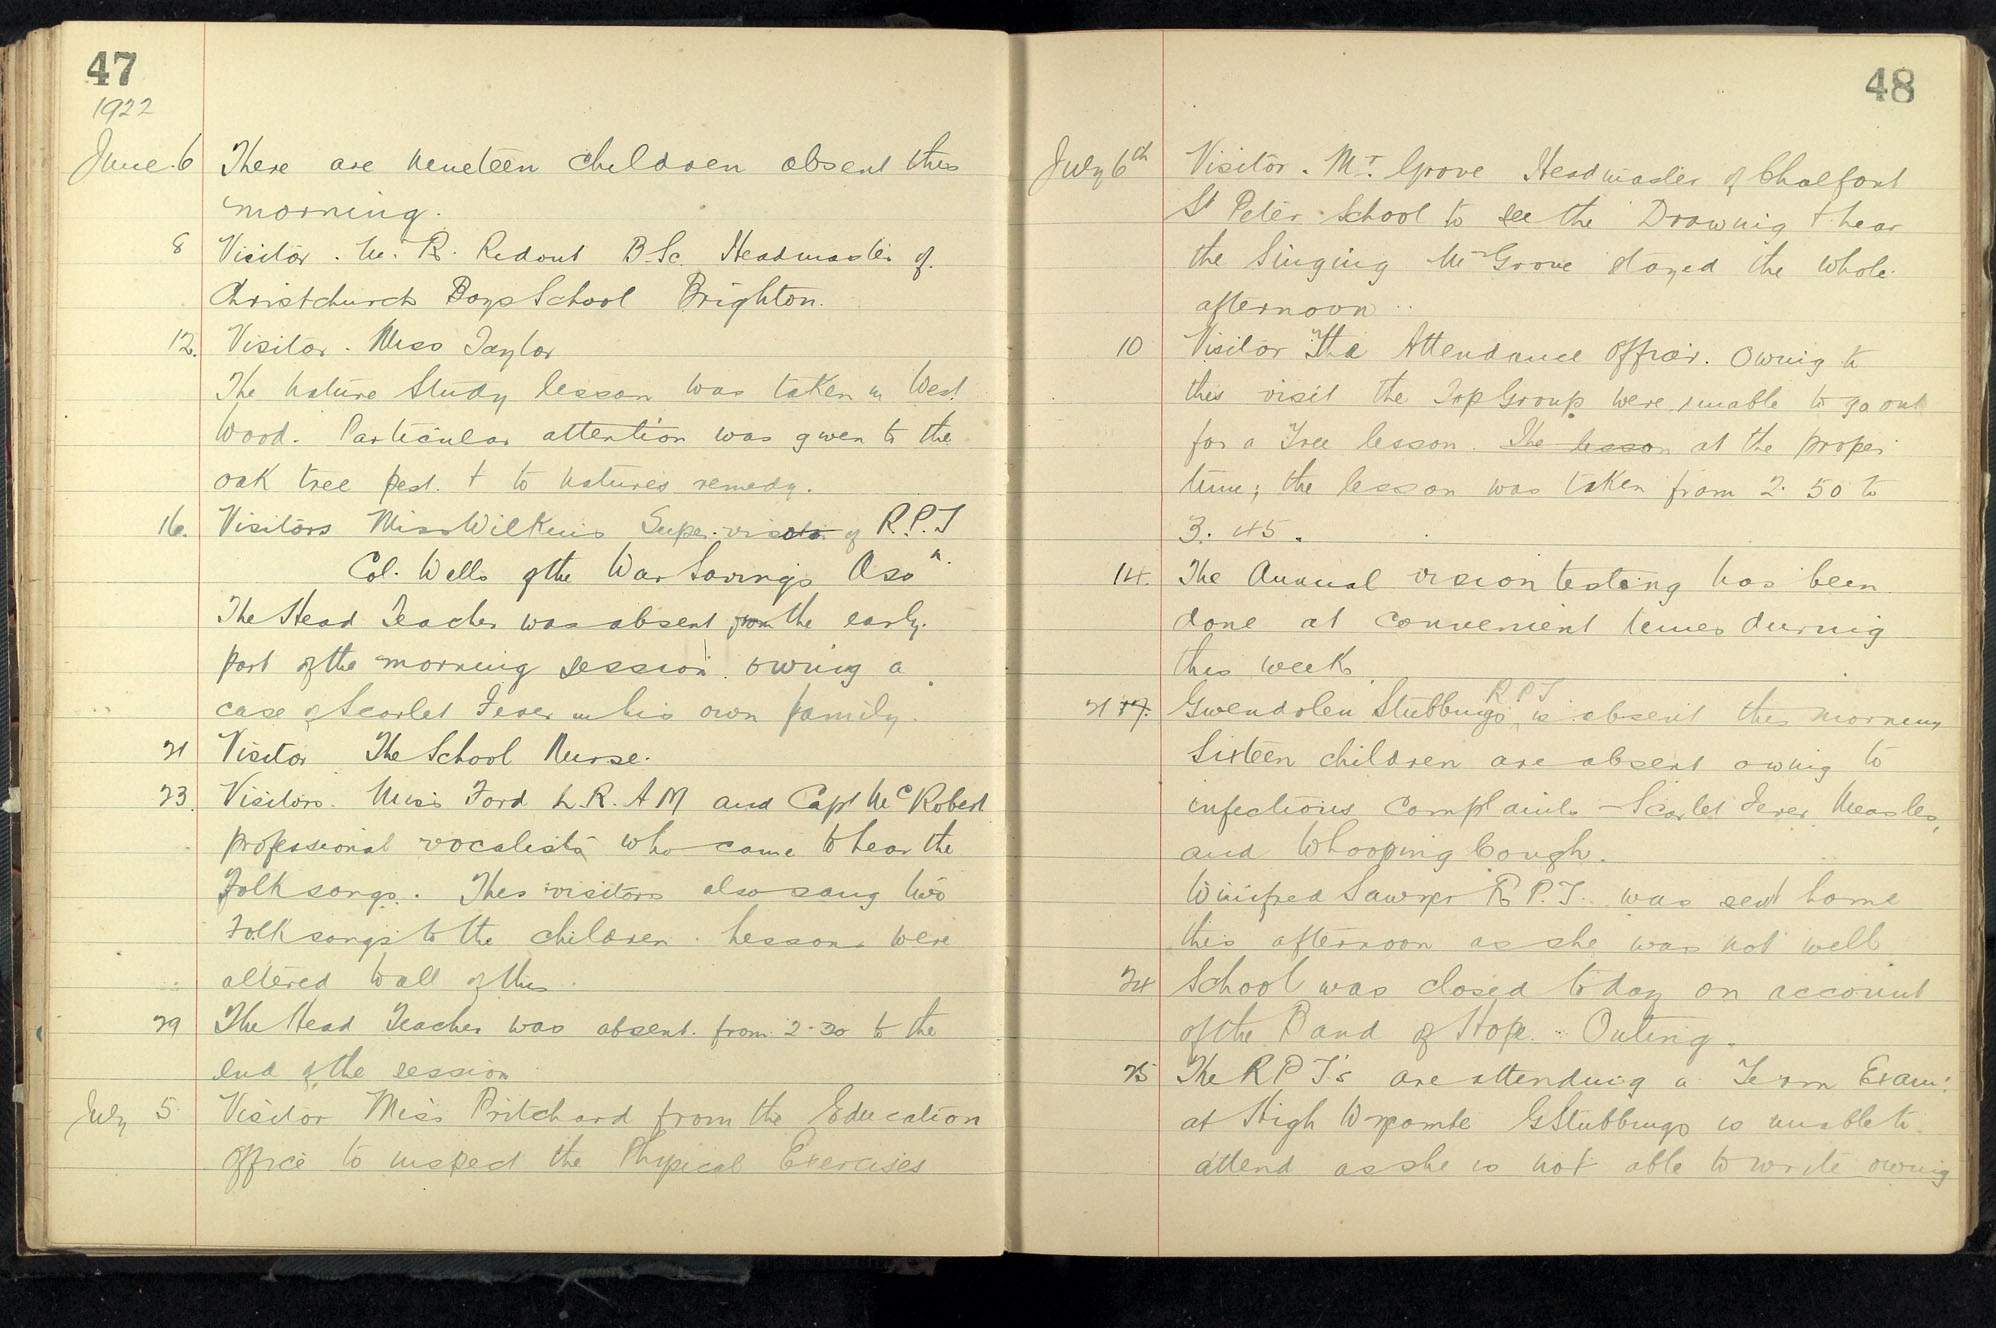 47
1922
June 6 There are nineteen children absent this
morning.
8 Visitor. Mr. R. Ridout B.Sc. Headmaster of
Christchurch Boys School Brighton.
12. Visitor. Miss Taylor
The Nature Study lesson was taken in West
Wood. Particular attention was given to the
oak tree pest. & to natures remedy.
16. Visitors Miss Wilkins Super-visor of R.P.T
Col. Wells of the War Savings Asson.
The Head Teacher was absent from the early
part of the morning session owing a
case of Scarlet Fever in his own family.
21 Visitor The School Nurse.
23. Visitors. Miss Ford L.R.A M and Capt McRobert
professional vocalists who came to hear the
Folk songs. Thes visitors also sang two
Folk songs to the children. Lessons were
altered to all of this.
29 The Head Teacher was absent from 2-30 to the
end of the session
July 5 Visitor Miss Pritchard from the Education
Office to inspect the Physical Exercises
48
July 6th Visitor. Mr. Grove Headmaster of Chalfont
St Peter School to see the Drawing & hear
the Singing Mr Grove stayed the whole
afternoon.
10 Visitor The Attendance Officer. Owing to
this visit the Top Group were unable to go out
for a Tree lesson. The lesson at the proper
time; the lesson was taken from 2. 50 to
3. 45.
14. The Annual vision testing has been
done at convenient times during
this week.
21 17. Gwendolen Stubbings R P T is absent this morning
Sixteen children are absent owing to
infectious complaints - Scarlet Fever, Measles,
and Whooping Cough.
Winifred Sawyer R P.T. was sent home
this afternoon as she was not well
24 School was closed today on account
of the Band of Hope Outing.
25 The R P T's are attending a Term Exam:
at High Wycombe G Stubbings is unable to
attend as she is not able to write owing